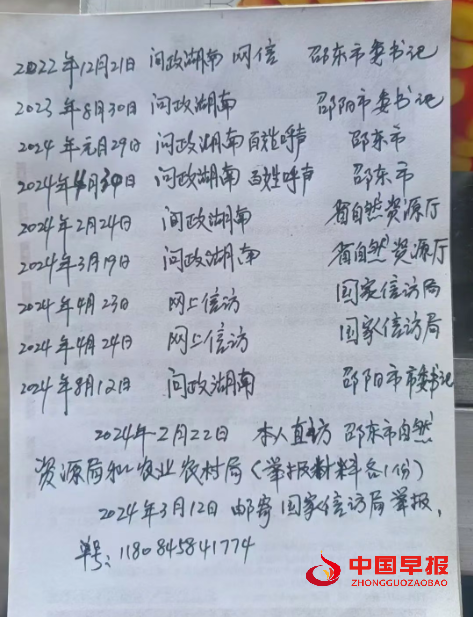 2022年12月21日 问政湖南 网信 邵东市委书记
2023年8月30日 问政湖南 邵阳市委书记
2024年元月29日 问政湖南 百姓呼声 邵东市
2024年4月30日 问政湖南 百姓呼声 邵东市
2024年2月24日 问政湖南 省自然资源厅
2024年3月19日 问政湖南 省自然资源厅
2024年4月23日 网上信访 国家信访局
2024年4月24日 网上信访 国家信访局
2024年8月12日 问政湖南 邵阳市市委书记
2024年2月22日 本人直访 邵东市自然
资源局和农业农村局(举报材料各1份)
2024年3月12日 邮寄国家信访局举报,
单号:1180845841774
中国早报
ZHONGGUOZAOBAO